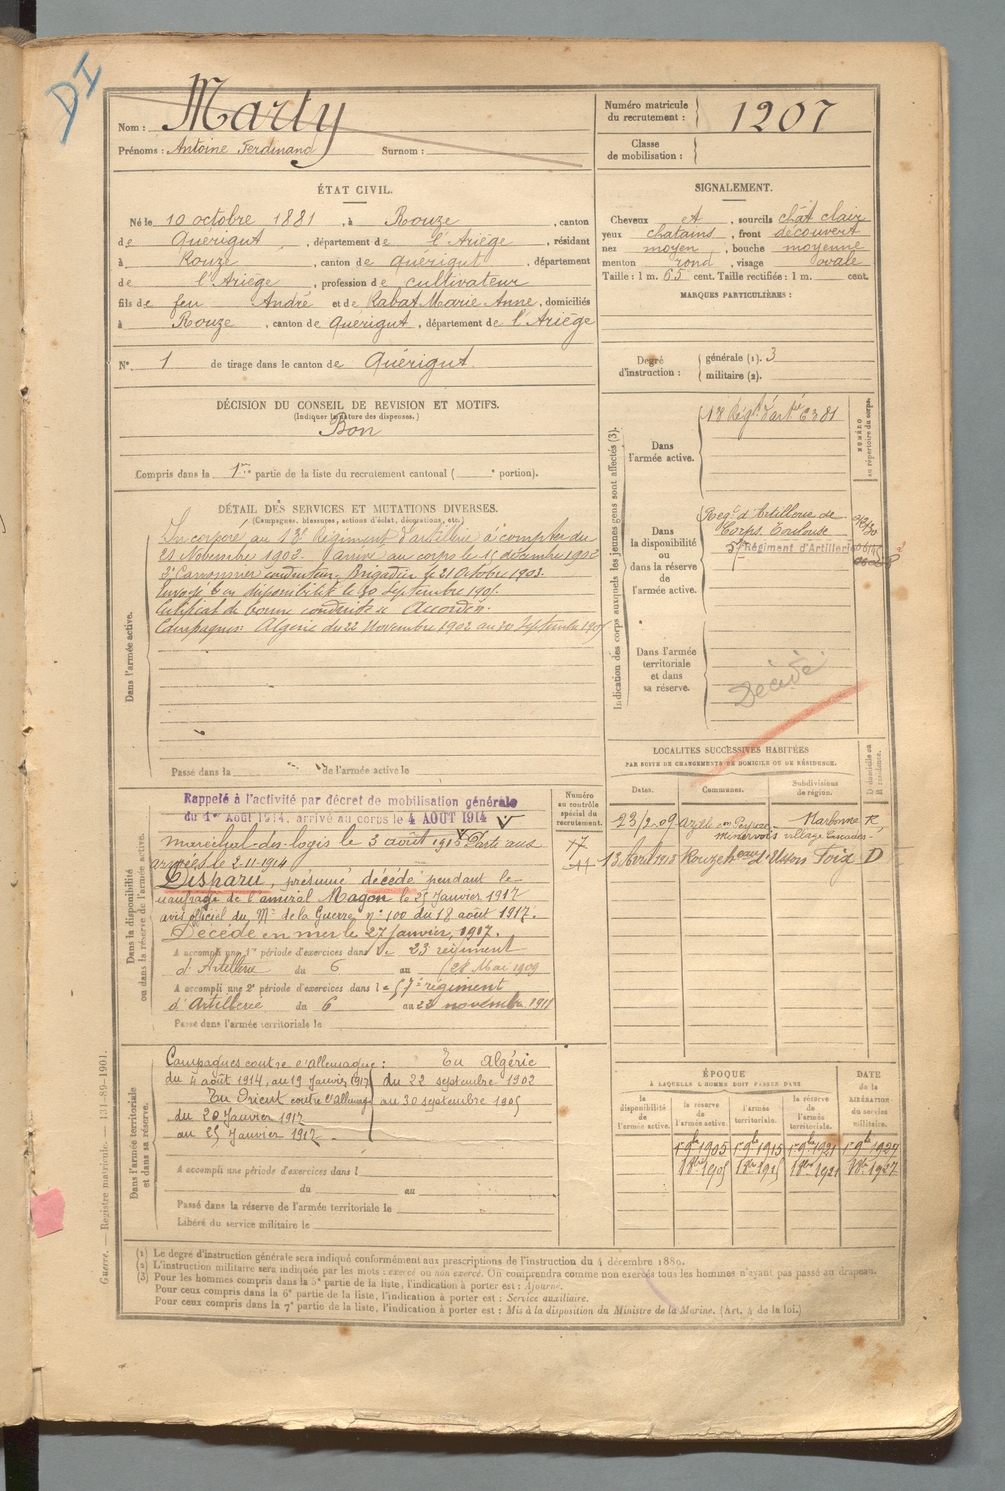 DI
Nom : Marty
Prénoms : Antoine Ferdinand Surnom :
Numéro matricule du recrutement : 1207
Classe de mobilisation :
ÉTAT CIVIL.
Né le 10 octobre 1881, à Rouze, canton
de Quérigut, département de l'Ariège, résidant
à Rouze, canton de Quérigut, département
de l'Ariège, profession de cultivateur
fils de feu André et de Rabat Marie Anne, domiciliés
à Rouze, canton de Quérigut, département de l'Ariège
N° 1 de tirage dans le canton de Quérigut
SIGNALEMENT.
Cheveux et, sourcils chât clair
yeux chatains, front découvert
nez moyen, bouche moyenne
menton rond, visage ovale
Taille : 1 m. 65 cent. Taille rectifiée : 1 m. cent.
MARQUES PARTICULIÈRES :
Degré d'instruction : générale (1). 3
militaire (2).
DÉCISION DU CONSEIL DE REVISION ET MOTIFS.
(Indiquer la nature des dispenses.)
Bon
Compris dans la 1re partie de la liste du recrutement cantonal ( e portion).
DÉTAIL DES SERVICES ET MUTATIONS DIVERSES.
(Campagnes, blessures, actions d'éclat, décorations, etc.)
Dans l'armée active.
Incorporé au 13e Régiment d'artillerie à compter du
Novembre 1902. arrivé au corps le décembre 1902
2e Canonnier conducteur. Brigadier le 21 Octobre 1903.
Envoyé en disponibilité le 30 Septembre 1905.
Certificat de bonne conduite « Accordé ».
Campagnes : Algérie du 22 Novembre 1902 au 30 Septembre 1905
Passé dans la de l'armée active le
Indication des corps auxquels les jeunes gens sont affectés (3).
NUMÉRO au répertoire du corps.
Dans l'armée active.
Régt d'artie 6381
Dans la disponibilité ou dans la réserve de l'armée active.
Régt d'Artillerie de
Corps Toulouse
Régiment d'Artillerie
Dans l'armée territoriale et dans sa réserve.
Décédé
LOCALITÉS SUCCESSIVES HABITÉES
PAR SUITE DE CHANGEMENTS DE DOMICILE OU DE RÉSIDENCE.
Dates. Communes. Subdivisions de région. D domicile ou R résidence.
23/2.09 Azille en Peyriac Narbonne R
Minervois village
13 Avril 1913 Rouze heau d'Usson Foix D
Dans la disponibilité ou dans la réserve de l'armée active.
Numéro au contrôle spécial du recrutement.
Rappelé à l'activité par décret de mobilisation générale
du 1er Août 1914, arrivé au corps le 4 AOUT 1914
maréchal-des-logis le 3 août 1915 Parti aux
armées le 2-11-1914
Disparu, présumé décédé pendant le
naufrage de l'amiral Magon le 25 Janvier 1917
avis officiel du Me de la Guerre n° 100 du 18 août 1917.
Décédé en mer le 27 Janvier 1917.
A accompli une 1re période d'exercices dans le 23 régiment
d'Artillerie du 6 au 28 Mai 1909
A accompli une 2e période d'exercices dans le 57e régiment
d'Artillerie du 6 au 22 novembre 1911
Passé dans l'armée territoriale le
Dans l'armée territoriale et dans sa réserve.
Campagnes contre l'allemagne : En Algérie
du 4 août 1914, au 19 Janvier 1917 du 22 septembre 1902
En Orient contre l'allemag au 30 septembre 1905
du 20 Janvier 1917
au 25 Janvier 1917.
A accompli une période d'exercices dans l
du au
Passé dans la réserve de l'armée territoriale le
Libéré du service militaire le
ÉPOQUE
À LAQUELLE L'HOMME DOIT PASSER DANS
la disponibilité de l'armée active. la réserve de l'armée active. l'armée territoriale. la réserve de l'armée territoriale. DATE de la LIBÉRATION du service militaire.
1 9bre 1905 1 9bre 1915 1 9bre 1921 1 9bre 1927
(1) Le degré d'instruction générale sera indiqué conformément aux prescriptions de l'instruction du 4 décembre 1889.
(2) L'instruction militaire sera indiquée par les mots : exercé ou non exercé. On comprendra comme non exercés tous les hommes n'ayant pas passé au drapeau.
(3) Pour les hommes compris dans la 5e partie de la liste, l'indication à porter est : Ajourné.
Pour ceux compris dans la 6e partie de la liste, l'indication à porter est : Service auxiliaire.
Pour ceux compris dans la 7e partie de la liste, l'indication à porter est : Mis à la disposition du Ministre de la Marine. (Art. 4 de la loi.)
Guerre. — Registre matricule. — 131-89-1901.